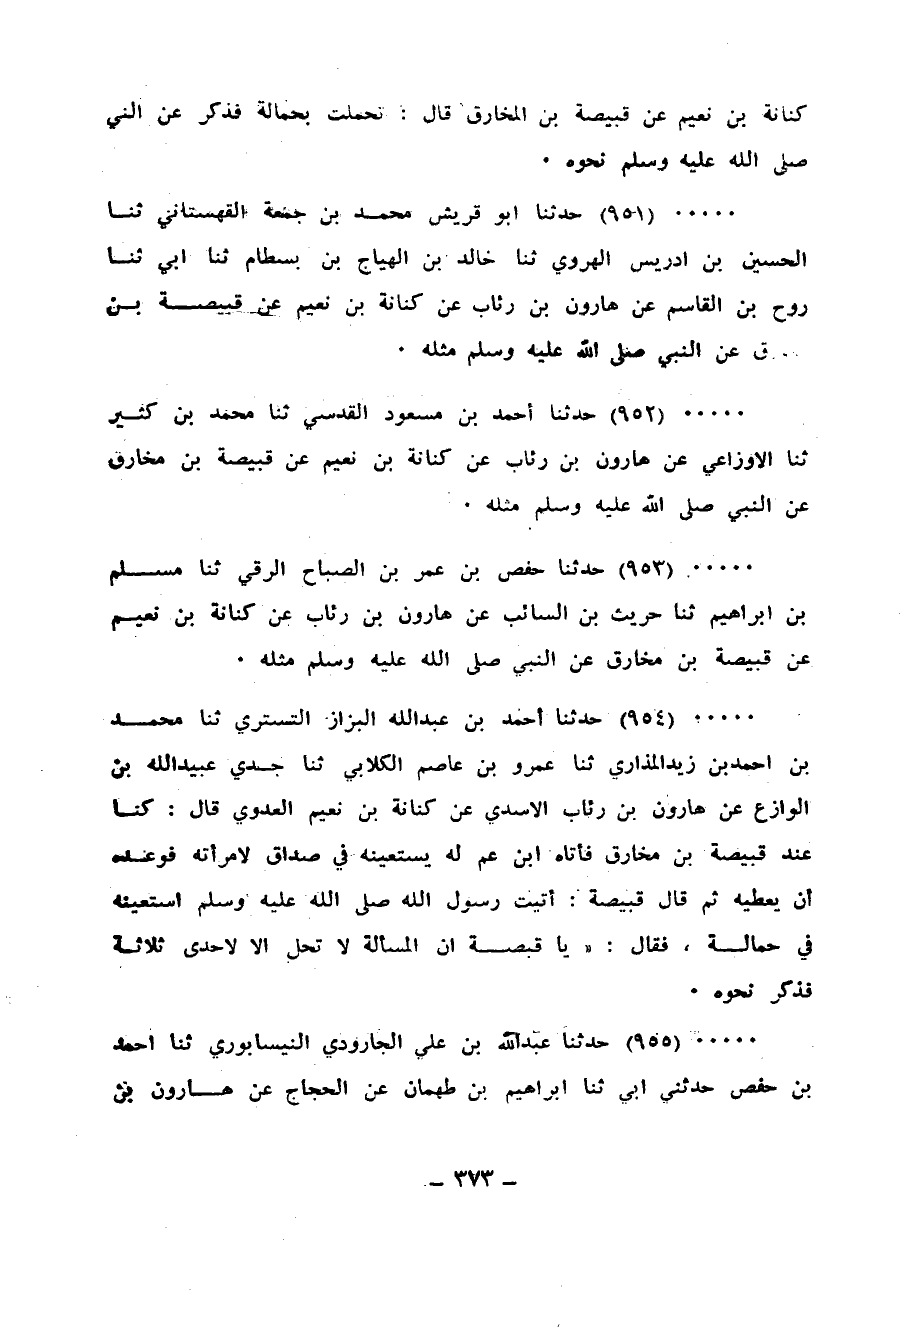 كنانة بن نعيم عن قبيصة بن المخارق قال : تحملت بحمالة فذكر عن النبي
صلى الله عليه وسلم نحوه ٠
٠٠٠٠٠ (٩٥١) حدثنا ابو قريش محمد بن جمعة القهستاني ثنا
الحسين بن ادريس الهروي ثنا خالد بن الهياج بن بسطام ثنا ابي ثنا
روح بن القاسم عن هارون بن رئاب عن كنانة بن نعيم عن قبيصة بن
ق عن النبي صلى الله عليه وسلم مثله ٠
٠٠٠٠٠ (٩٥٢) حدثنا أحمد بن مسعود القدسي ثنا محمد بن كثير
ثنا الاوزاعي عن هارون بن رئاب عن كنانة بن نعيم عن قبيصة بن مخارق
عن النبي صلى الله عليه وسلم مثله ٠
٠٠٠٠٠ (٩٥٣) حدثنا حفص بن عمر بن الصباح الرقي ثنا مسلم
بن ابراهيم ثنا حريث بن السائب عن هارون بن رئاب عن كنانة بن نعيم
عن قبيصة بن مخارق عن النبي صلى الله عليه وسلم مثله ٠
٠٠٠٠٠ (٩٥٤) حدثنا أحمد بن عبدالله البزاز التستري ثنا محمد
بن احمدبن زيدالمذاري ثنا عمرو بن عاصم الكلابي ثنا جدي عبيدالله بن
الوازع عن هارون بن رئاب الاسدي عن كنانة بن نعيم العدوي قال : كنا
عند قبيصة بن مخارق فأتاه ابن عم له يستعينه في صداق لامرأته فوعده
أن يعطيه ثم قال قبيصة : أتيت رسول الله صلى الله عليه وسلم استعينه
في حمالة ، فقال : « يا قبصة ان المسألة لا تحل الا لاحدى ثلاثة
فذكر نحوه ٠
٠٠٠٠٠ (٩٥٥) حدثنا عبدالله بن علي الجارودي النيسابوري ثنا احمد
بن حفص حدثني ابي ثنا ابراهيم بن طهمان عن الحجاج عن هارون بن
– ٣٧٣ –